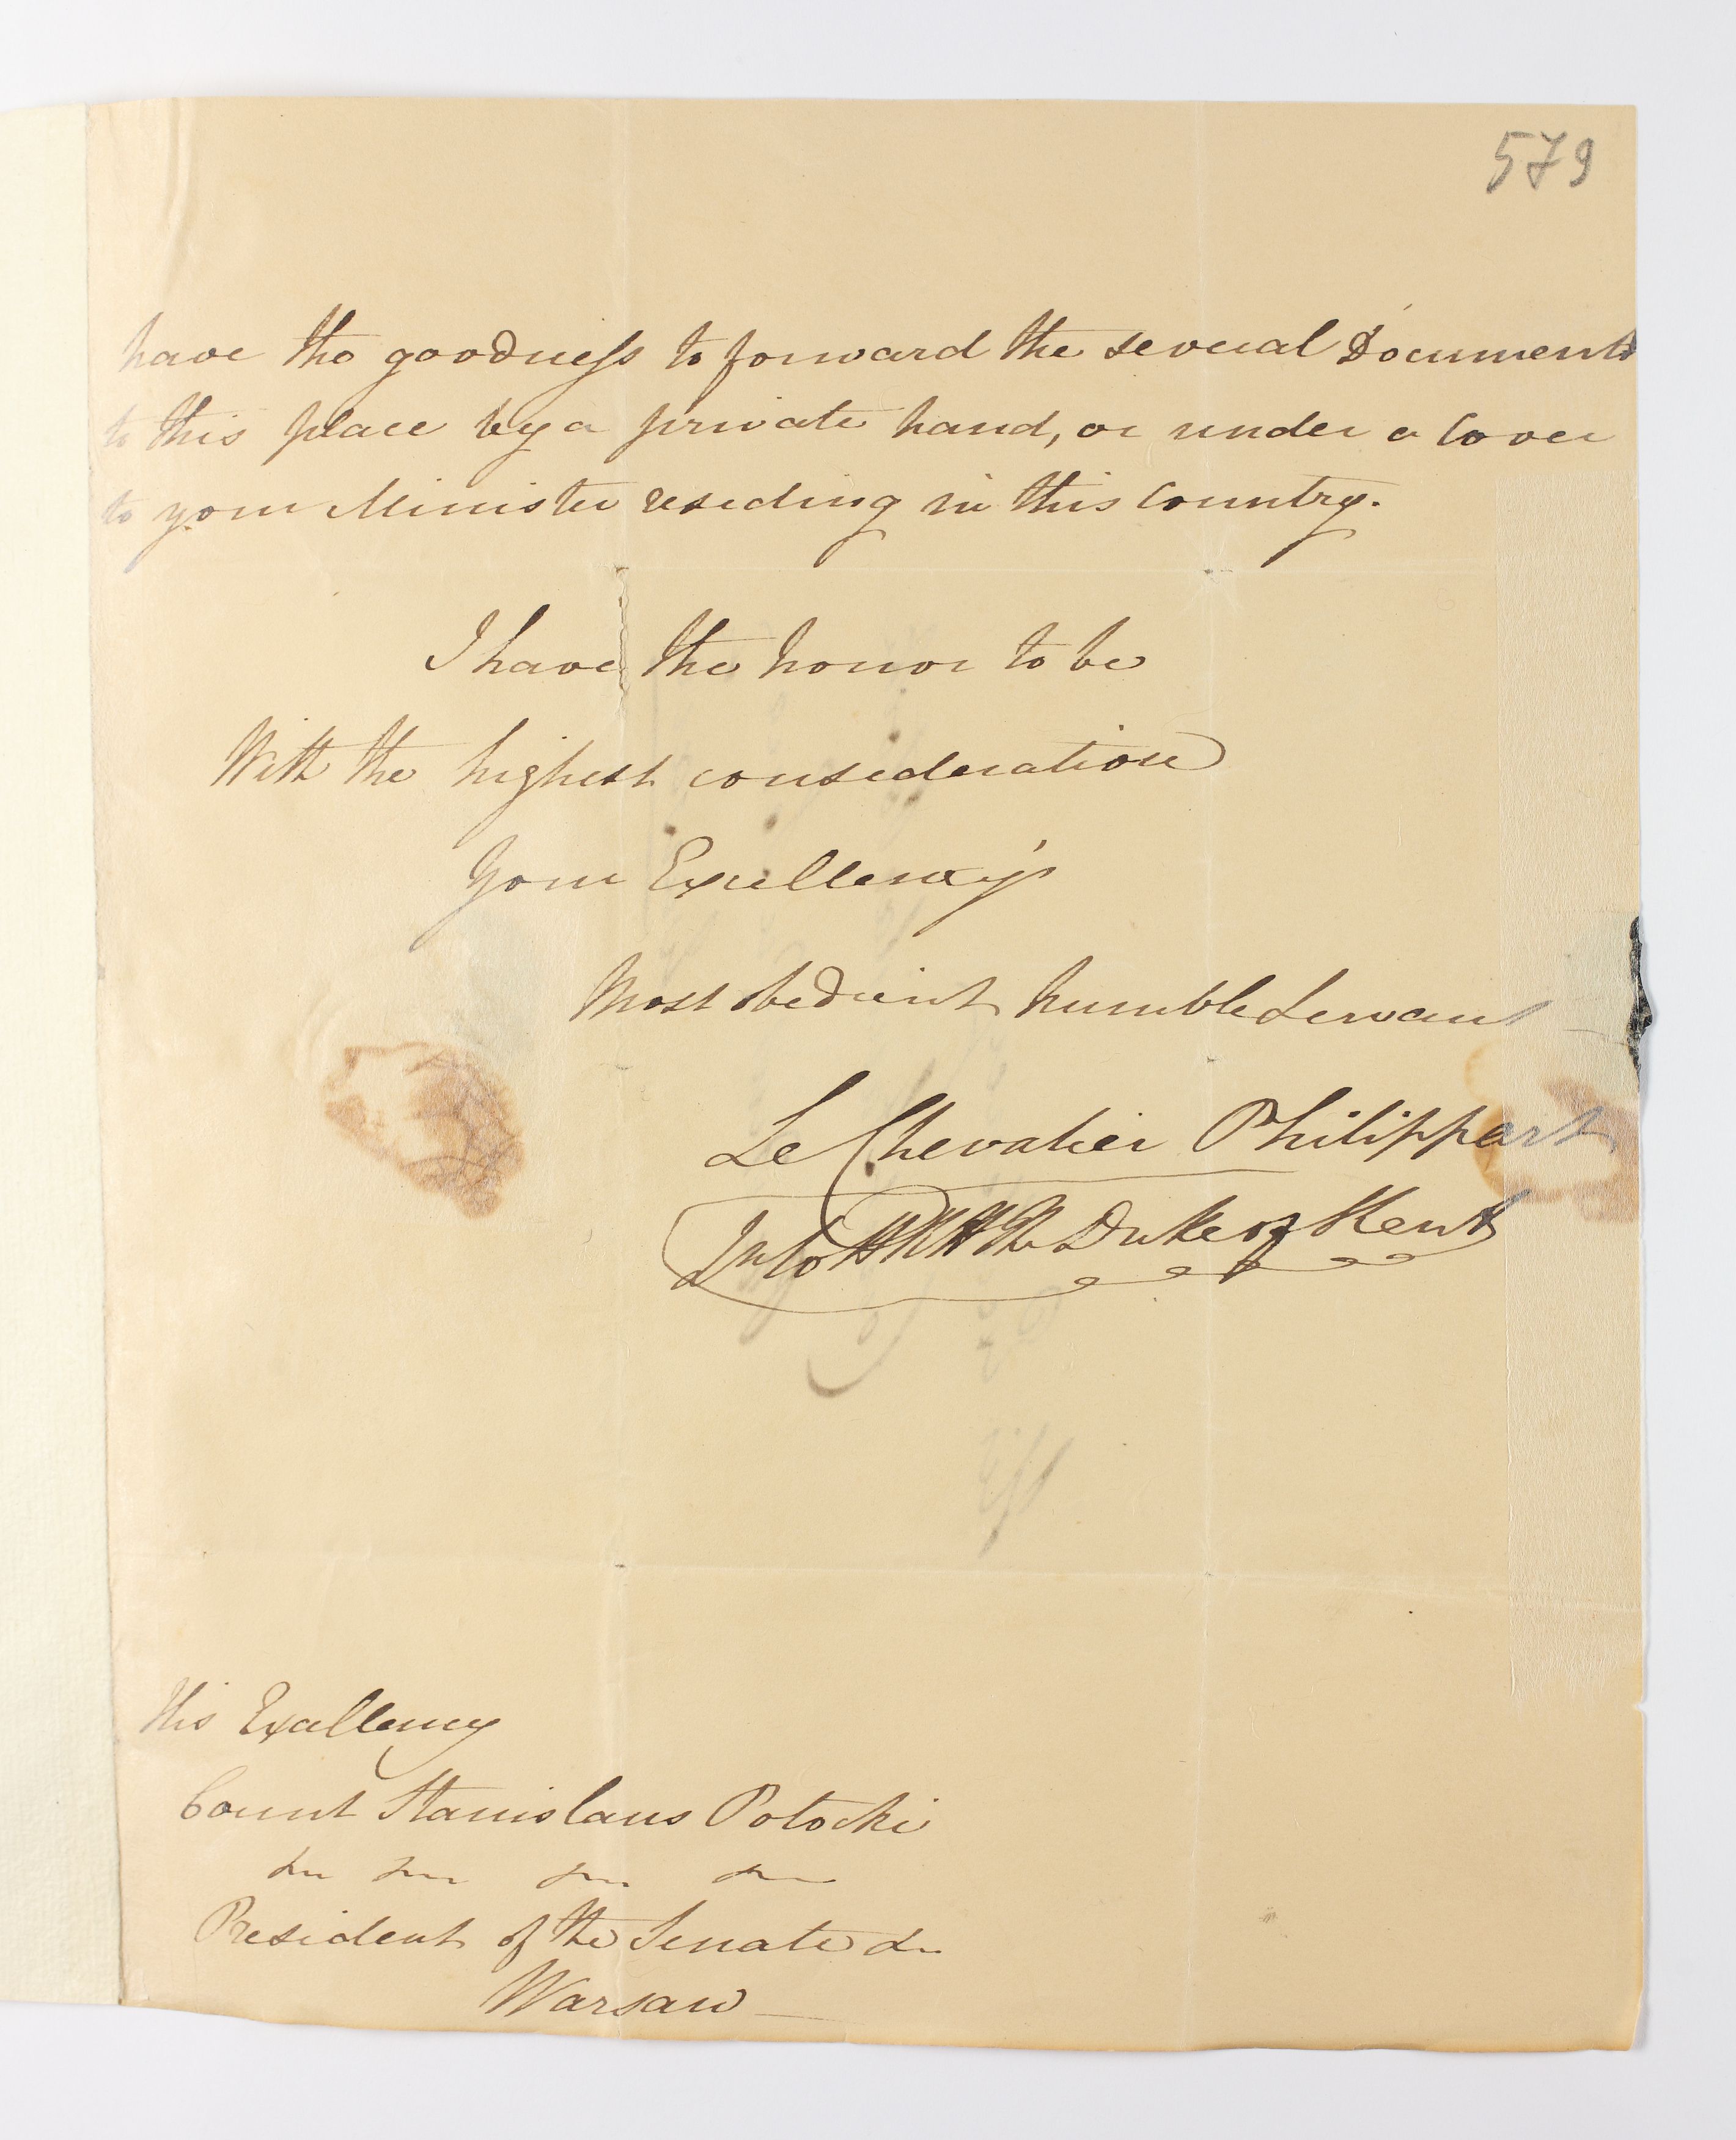 579
have the goodness to forward the several Documents
to this place by a private hand, or under a Cover
to your Minister residing in this Country.
I have the honor to be
With the highest consideration
Your Excellency's
Most obedient humble Servant
Le Chevalier Philippart
HRH the Duke of Kent
His Excellency
Count Stanislaus Potocki
President of the Senate &c
Warsaw